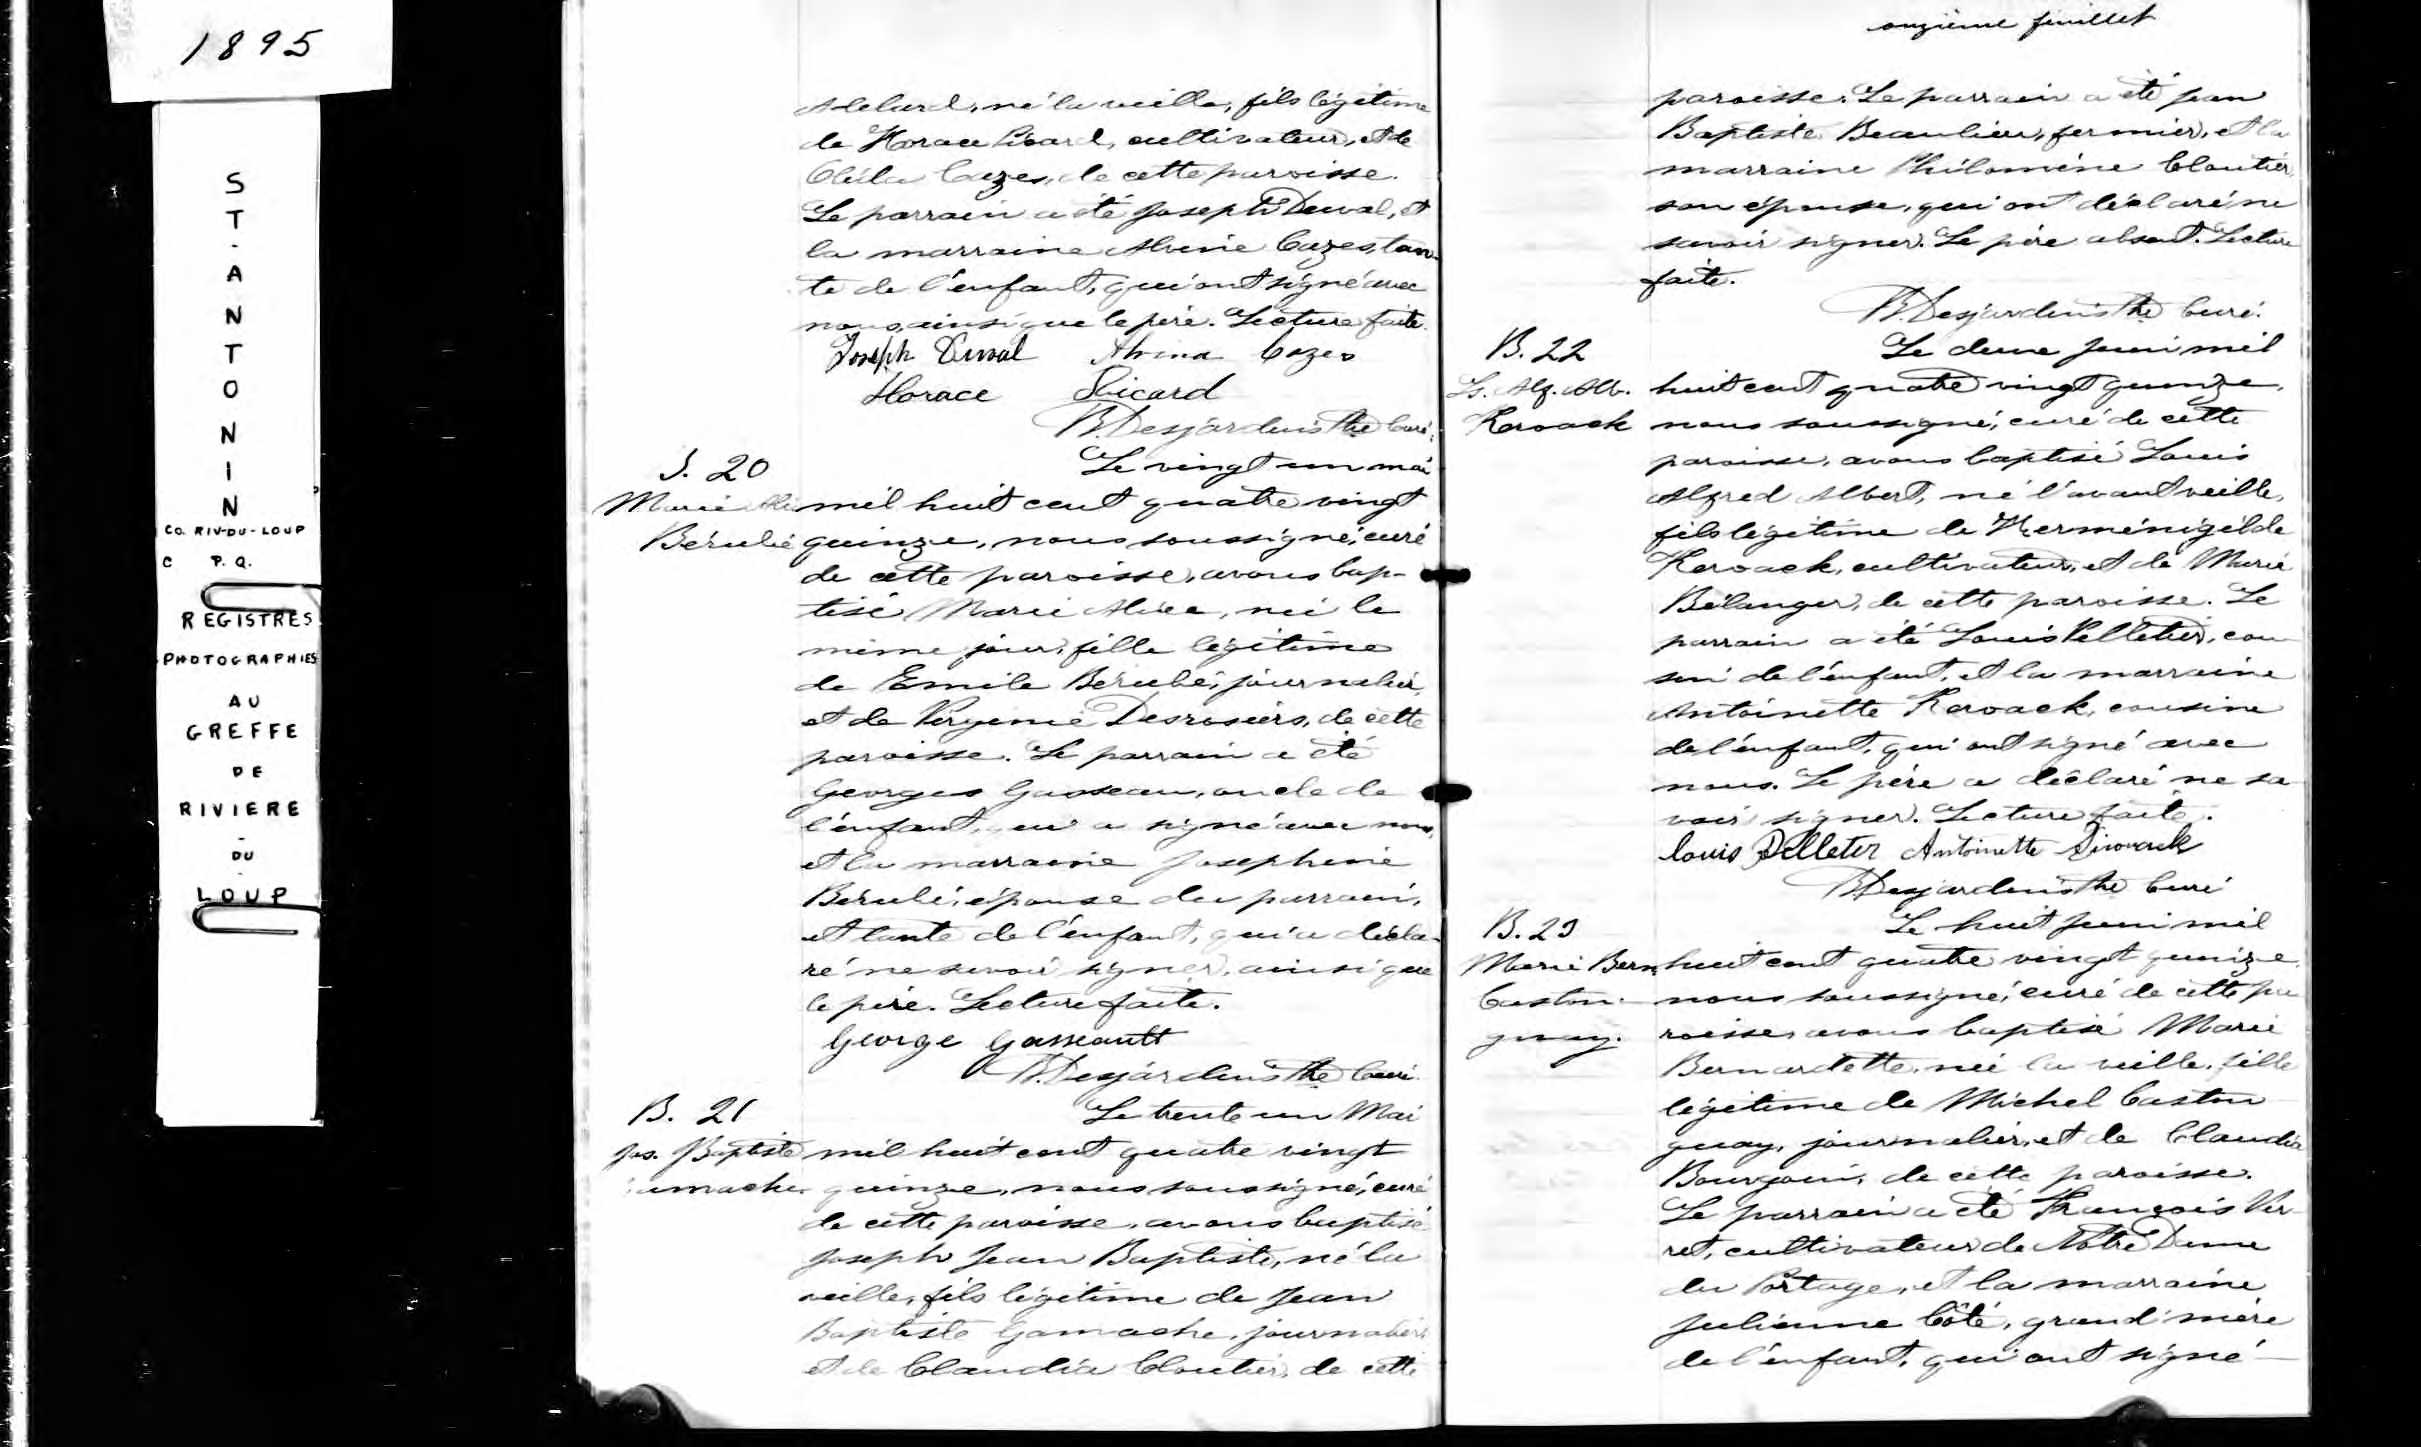 1895
ST-ANTONIN
CO. RIV-DU-LOUP
C P.Q.
REGISTRES
PHOTOGRAPHIES
AU
GREFFE
DE
RIVIERE
-
DU
-
LOUP
Adelard, né la veille, fils légitime
de Horace Sicard, cultivateur, et de
Clélia Cazes, de cette paroisse.
Le parrain a été Joseph Duval, et
la marraine Alvine Cazes, tan-
te de l'enfant, qui ont signé avec
nous, ainsi que le père. Lecture faite.
Joseph Duval Alvina Cazes
Horace Sicard
B. Desjardins Ptre Curé.
S. 20
Marie Ali
Bérubé
Le vingt un mai
mil huit cent quatre vingt
quinze, nous soussigné, curé
de cette paroisse, avons bap-
tisé Marie Alice, née le
même jour, fille légitime
de Emile Bérubé, journalier,
et de Virginie Desrosiers, de cette
paroisse. Le parrain a été
Georges Gasseau, oncle de
l'enfant, qui a signé avec nous,
et la marraine Josephine
Bérubé, épouse du parrain,
et tante de l'enfant, qui a décla-
ré ne savoir signer, ainsi que
le père. Lecture faite.
George Gasseault
B. Desjardins Ptre Curé.
B. 21
Jos. J Baptiste
amache
Le trente un Mai
mil huit cent quatre vingt
quinze, nous soussigné, curé
de cette paroisse, avons baptisé
Joseph Jean Baptiste, né la
veille, fils légitime de Jean
Baptiste Gamache, journalier,
et de Claudia Cloutier, de cette
onzième feuillet
paroisse. Le parrain a été Jean
Baptiste Beaulieu, fermier, et la
marraine Philomène Cloutier,
son épouse, qui ont déclaré ne
savoir signer. Le père absent. Lecture
faite.
B. Desjardins Ptre Curé.
B. 22
Ls. Alf. Alb.
Kerouack
Le deux Juin mil
huit cent quatre vingt quinze,
nous soussigné, curé de cette
paroisse, avons baptisé Louis
Alfred Albert, né l'avant veille,
fils légitime de Herménégilde
Kerouack, cultivateur, et de Marie
Bélanger, de cette paroisse. Le
parrain a été Louis Pelletier, cou
sin de l'enfant, et la marraine
Antoinette Kerouack, cousine
de l'enfant, qui ont signé avec
nous. Le père a déclaré ne sa
voir signer. Lecture faite.
Louis Pelleter Antoinette
B. Desjardins Ptre Curé
B. 23
Marie Bern
Caston-
guay.
Le huit Juin mil
huit cent quatre vingt quinze,
nous soussigné, curé de cette pa
roisse, avons baptisé Marie
Bernardette, née la veille, fille
légitime de Michel Caston
guay, journalier, et de Claudia
Bourgoin, de cette paroisse.
Le parrain a été François Ver-
ret, cultivateur de Notre Dame
du Portage, et la marraine
Julienne Côté, grand'mère
de l'enfant, qui ont signé